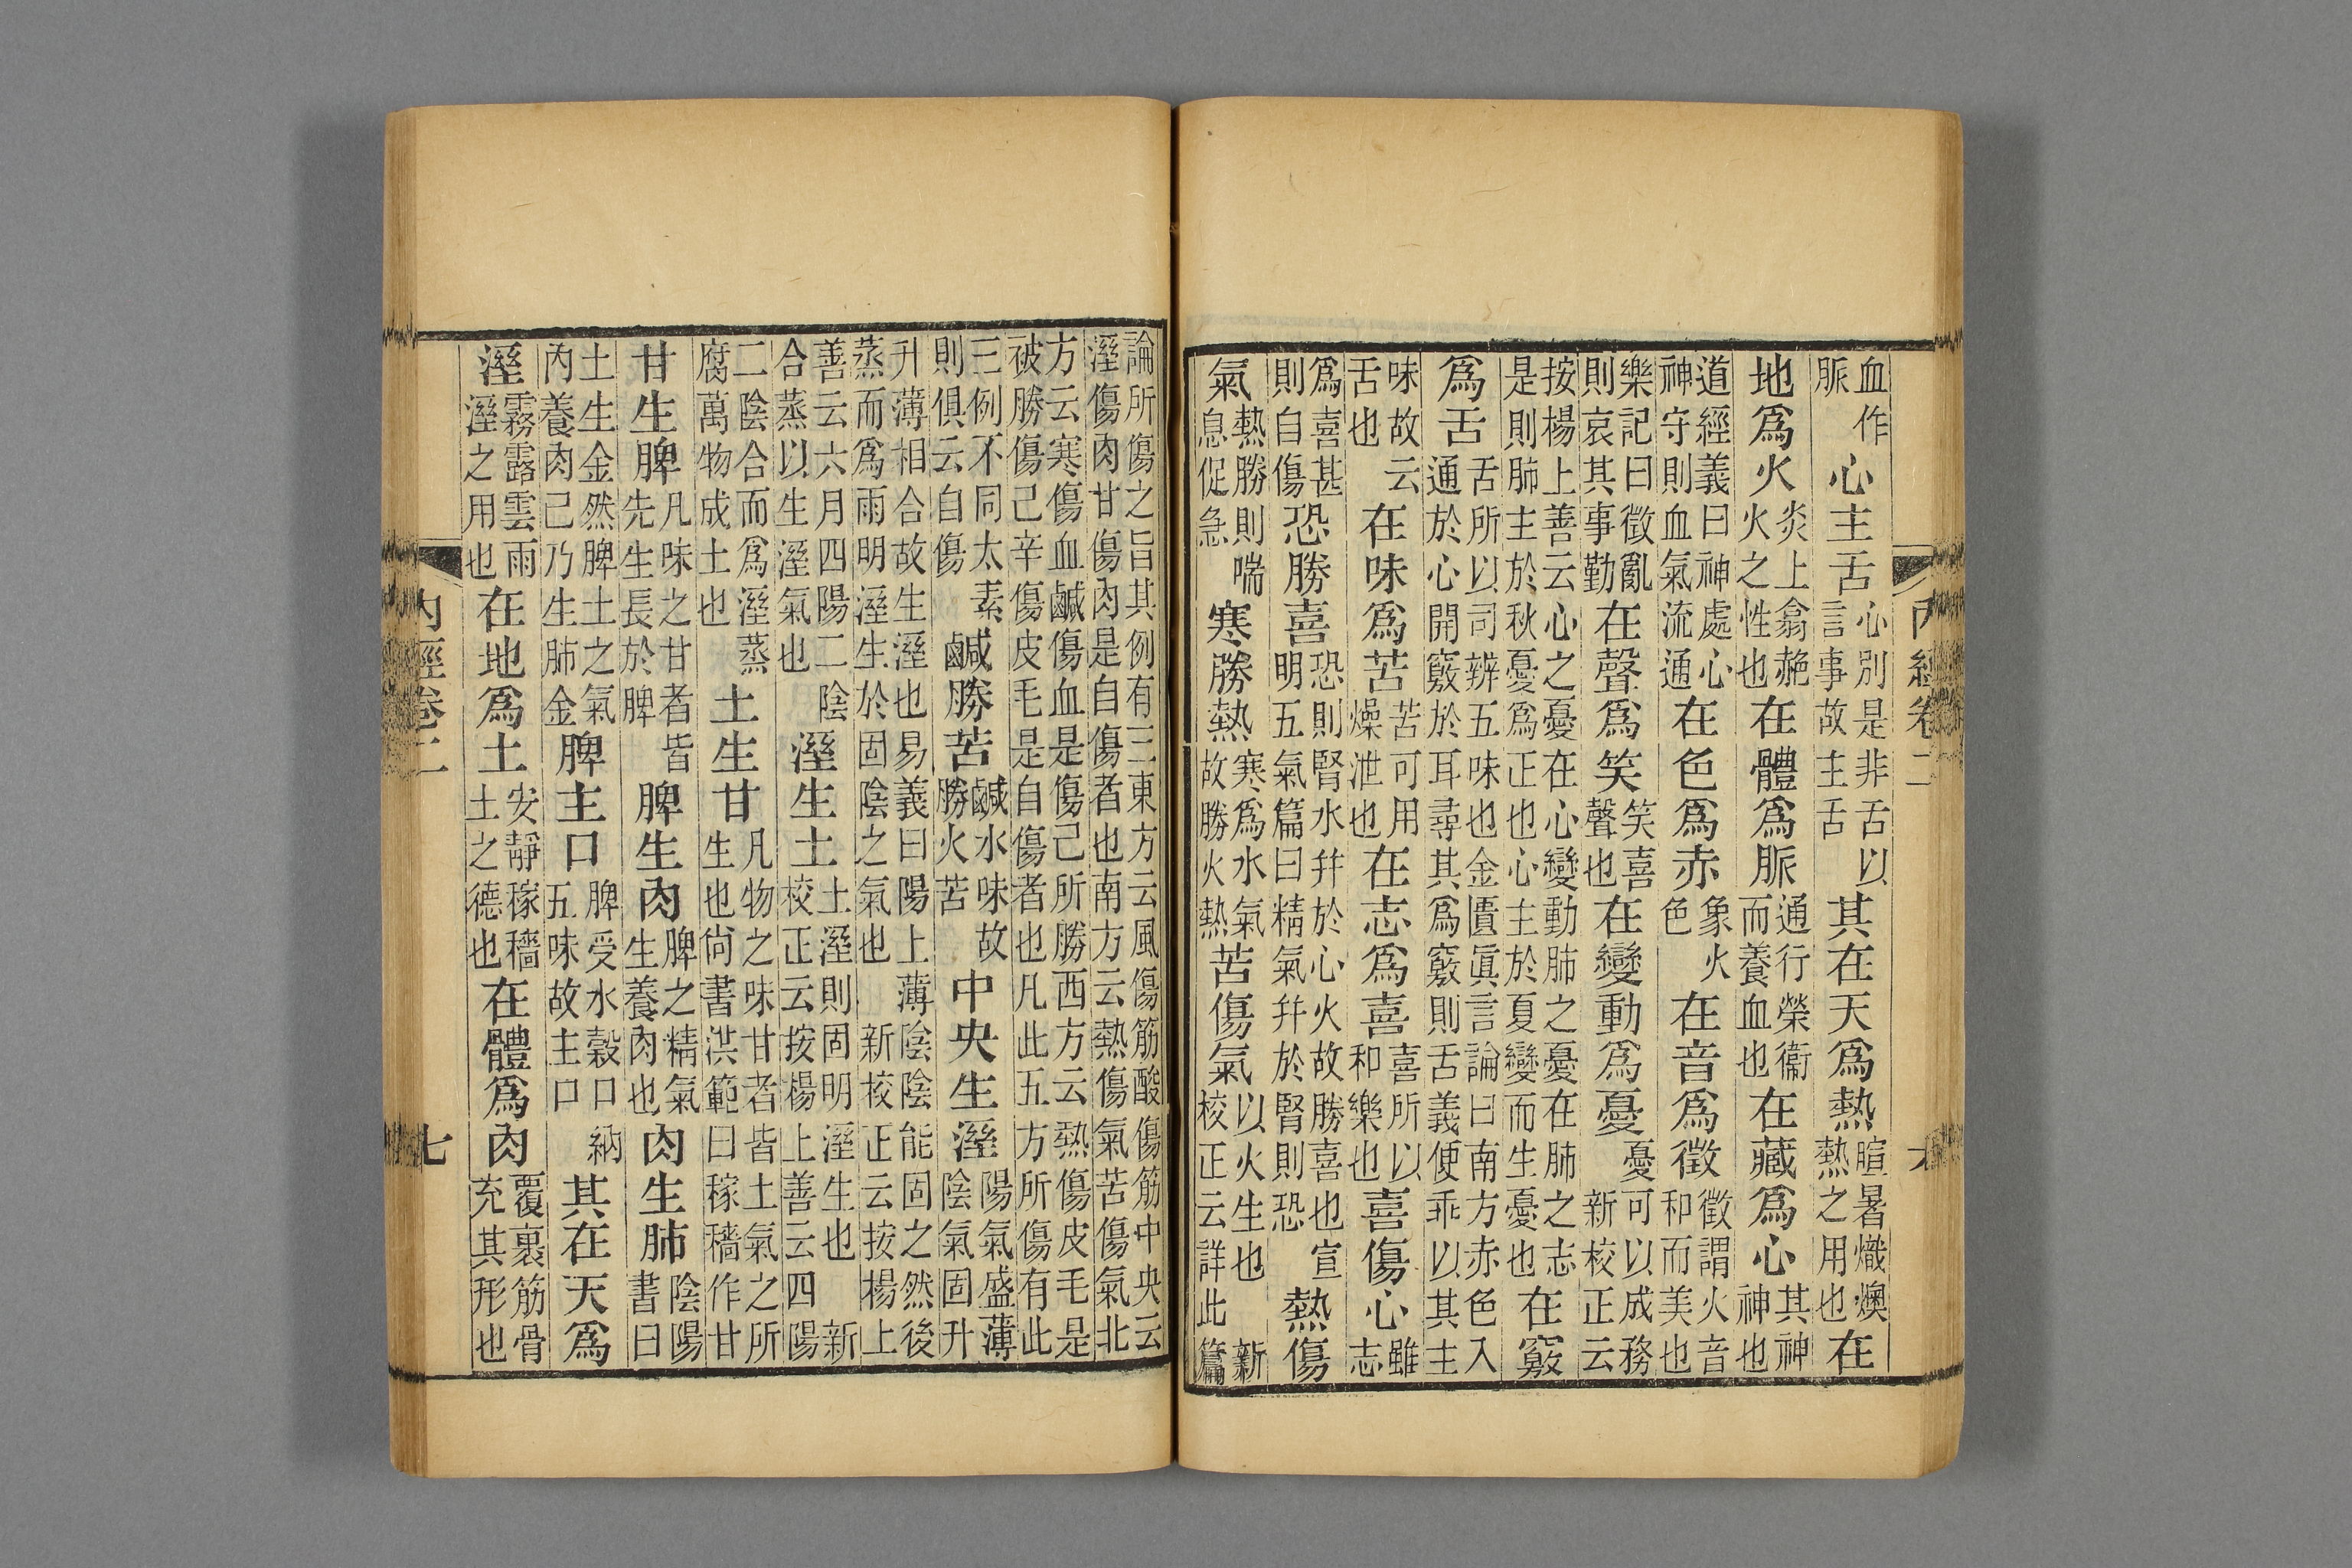 內經卷二
血作脈心主舌心別是非舌以言事故主舌其在天爲熱暄暑熾燠熱之用也在
地爲火炎上翕赩火之性也在體爲脈通行榮衞而養血也在藏爲心其神神也
道經義曰神處心神守則血氣流通在色爲赤象火色在音爲徵徵謂火音和而美也
樂記曰徵亂則哀其事勤在聲爲笑笑喜聲也在變動爲憂憂可以成務新校正云
按楊上善云心之憂在心變動肺之憂在肺之志是則肺主於秋憂爲正也心主於夏變而生憂也在竅
爲舌舌所以司辨五味也金匱眞言論曰南方赤色入通於心開竅於耳尋其爲竅則舌義便乖以其主
味故云舌也在味爲苦苦可用燥泄也在志爲喜喜所以和樂也喜傷心雖志
爲喜甚則自傷恐勝喜恐則腎水幷於心火故勝喜也宣明五氣篇曰精氣幷於腎則恐熱傷
氣熱勝則喘息促急寒勝熱寒爲水氣故勝火熱苦傷氣以火生也 新校正云詳此篇
論所傷之旨其例有三東方云風傷筋酸傷筋中央云溼傷肉甘傷肉是自傷者也南方云熱傷氣苦傷氣北
方云寒傷血鹹傷血是傷己所勝西方云熱傷皮毛是被勝傷己辛傷皮毛是自傷者也凡此五方所傷有此
三例不同太素則俱云自傷鹹勝苦鹹水味故勝火苦中央生溼陽氣盛薄陰氣固升
升薄相合故生溼也易義曰陽上薄陰陰能固之然後蒸而爲雨明溼生於固陰之氣也 新校正云按楊上
善云六月四陽二陰合蒸以生溼氣也溼生土土溼則固明溼生也 新校正云按楊上善云四陽
二陰合而爲溼蒸腐萬物成土也土生甘凡物之味甘者皆土氣之所生也尙書洪範曰稼穡作甘
甘生脾凡味之甘者皆先生長於脾脾生肉脾之精氣生養肉也肉生肺陰陽書曰
土生金然脾土之氣內養肉己乃生肺金脾主口脾受水穀口納五味故主口其在天爲
溼霧露雲雨溼之用也在地爲土安靜稼穡土之德也在體爲肉覆裹筋骨充其形也
內經卷二 七